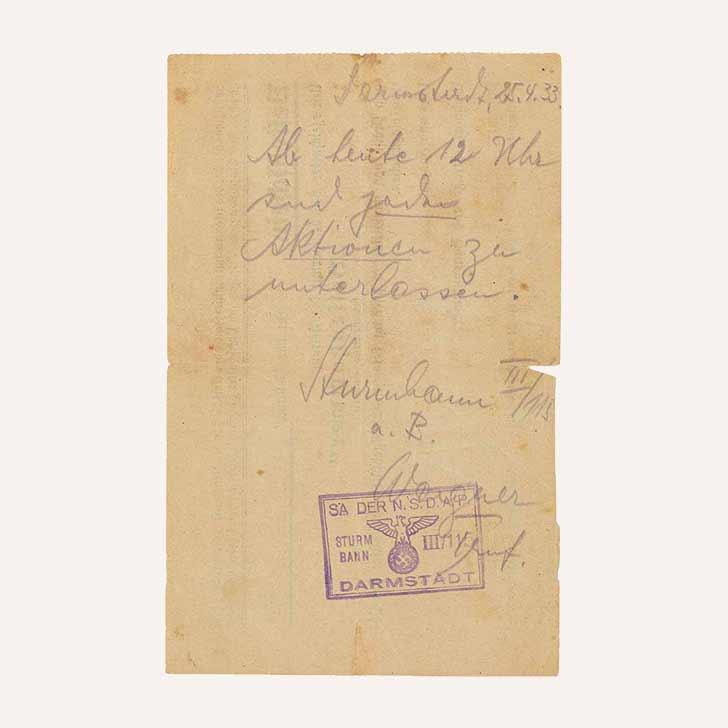 Darmstadt, 25.4.33.
Ab heute 12 Uhr
sind jeden
Aktionen zu
unterlassen.
Sturmbann III/115
a. B.
Wagner
SA DER N.S.D.A.P.
STURM III/115
BANN
DARMSTADT